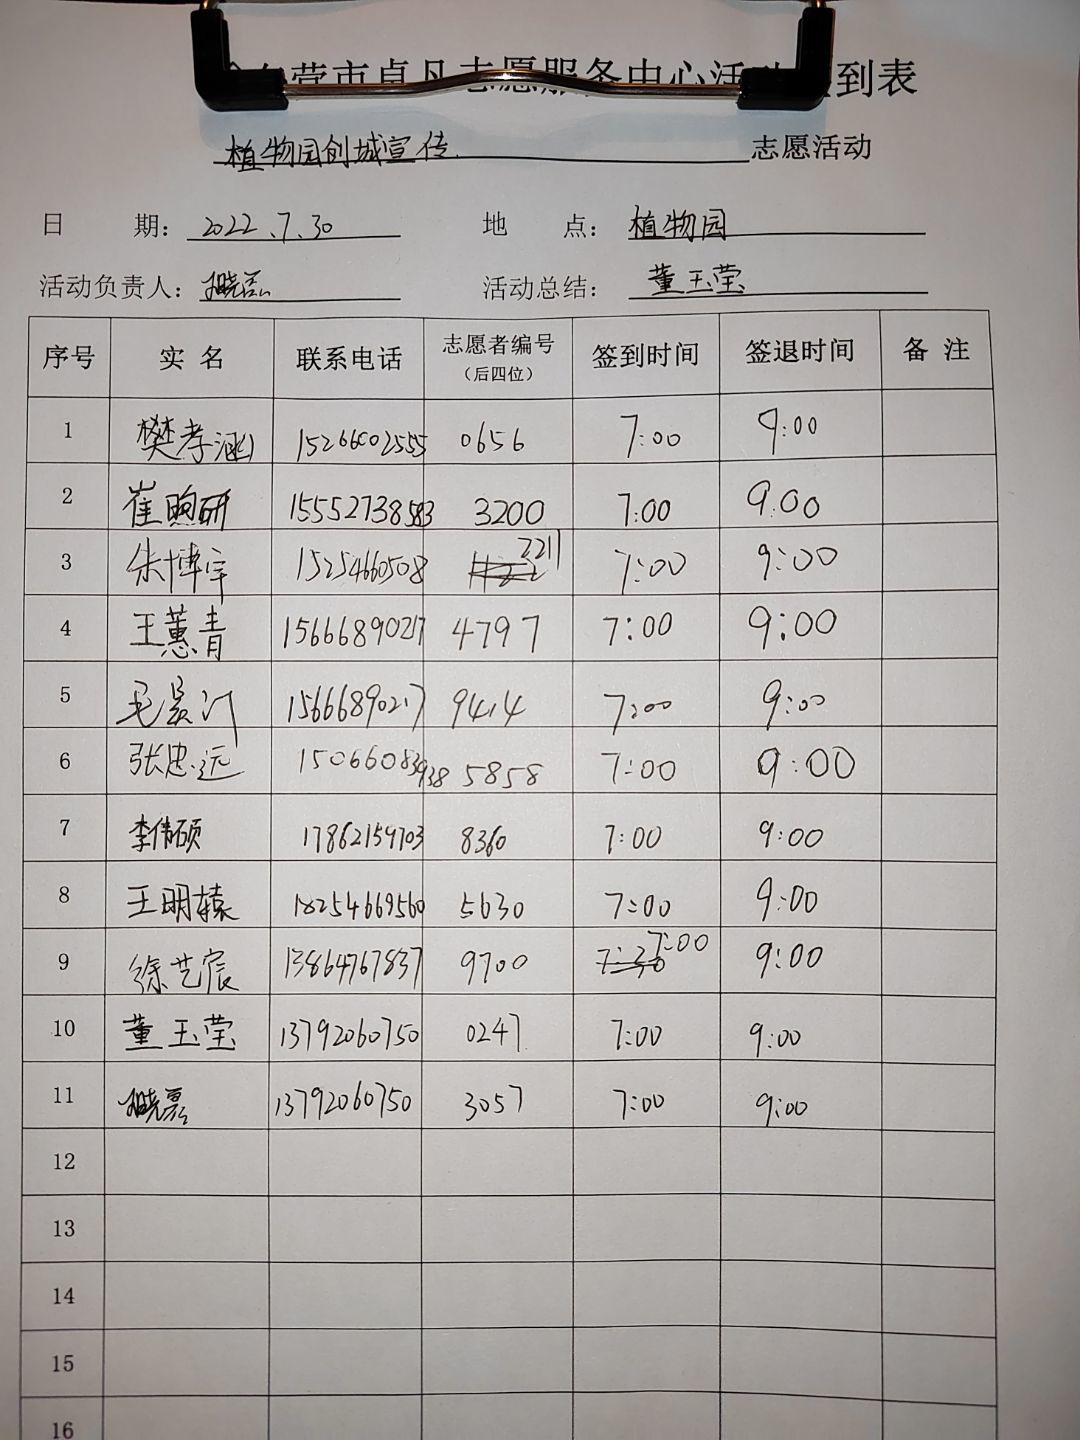 东营市卓凡志愿服务中心活动签到表
植物园创城宣传 志愿活动
日 期: 2022.7.30 地 点: 植物园
活动负责人: 活动总结: 董玉莹
序号 实名 联系电话 志愿者编号(后四位) 签到时间 签退时间 备注
1 樊孝涵 15266002555 0656 7:00 9:00
2 崔煦研 15552738583 3200 7:00 9:00
3 朱博宇 15254660508 2211 7:00 9:00
4 王蕙青 15666890217 4797 7:00 9:00
5 毛昊 15666890217 9414 7:00 9:00
6 张忠远 15066083938 5858 7:00 9:00
7 李伟硕 17862159703 8360 7:00 9:00
8 王明辕 18254669560 5630 7:00 9:00
9 徐艺宸 13864767837 9700 7:00 9:00
10 董玉莹 13792060750 0247 7:00 9:00
11 13792060750 3057 7:00 9:00
12
13
14
15
16